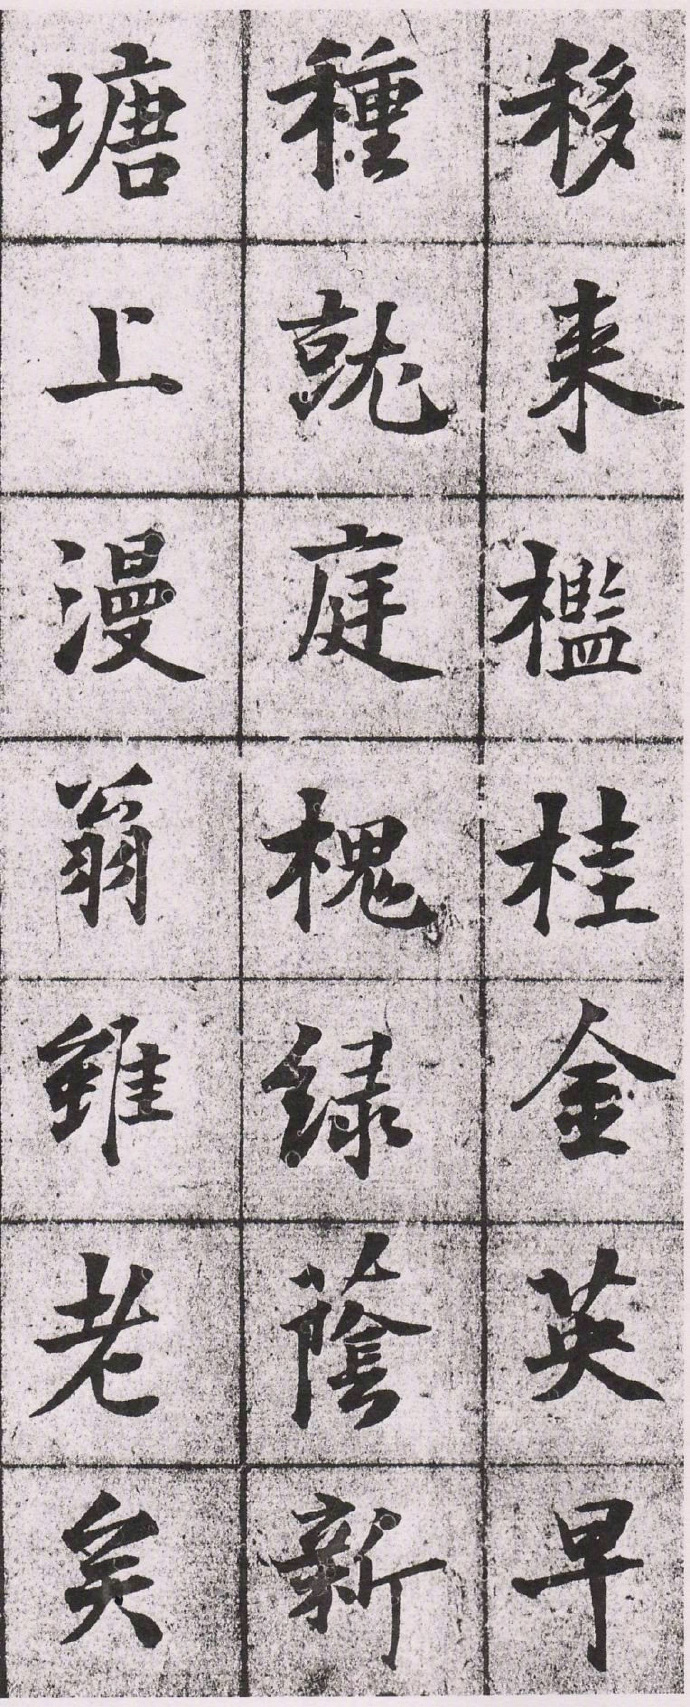 移来檻桂金英早
種就庭槐緑蔭新
塘上漫翁雖老矣